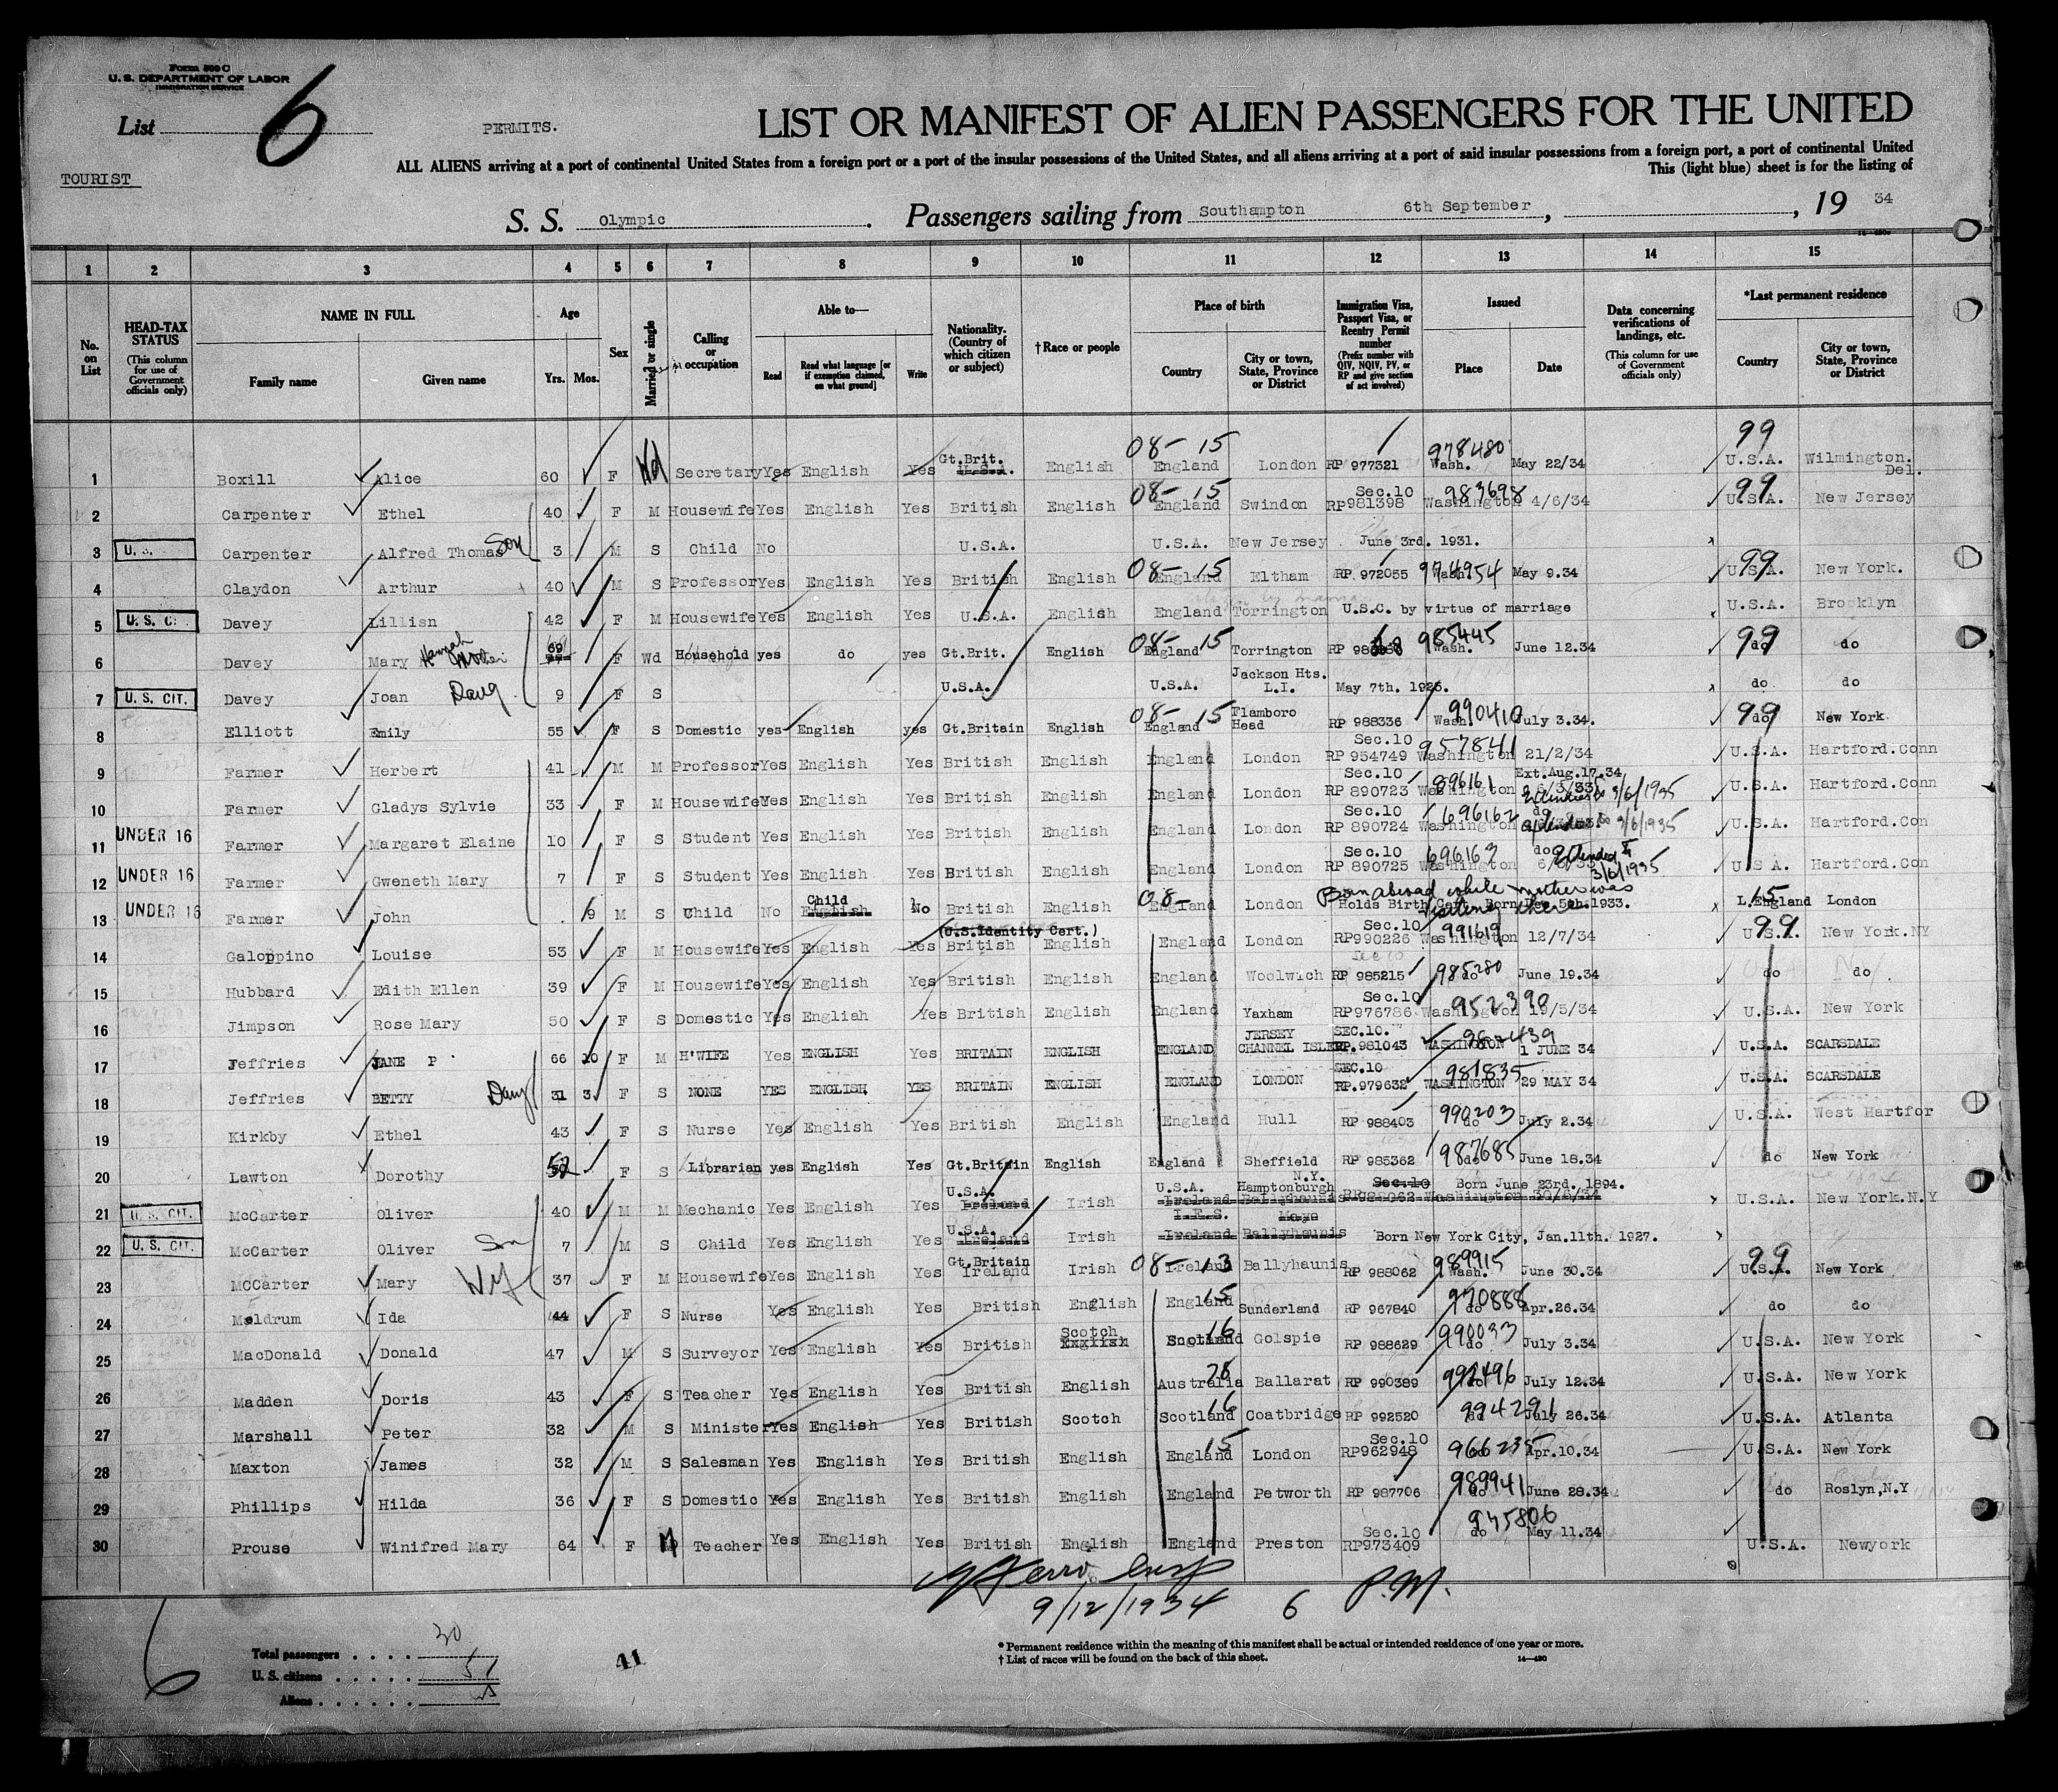 Form 500 C
U. S. DEPARTMENT OF LABOR
IMMIGRATION SERVICE
List 6
PERMITS.
LIST OR MANIFEST OF ALIEN PASSENGERS FOR THE UNITED
ALL ALIENS arriving at a port of continental United States from a foreign port or a port of the insular possessions of the United States, and all aliens arriving at a port of said insular possessions from a foreign port, a port of continental United
This (light blue) sheet is for the listing of
TOURIST
S. S. Olympic. Passengers sailing from Southampton 6th September, , 19 34
1 2 3 4 5 6 7 8 9 10 11 12 13 14 15
No. on List
HEAD-TAX STATUS (This column for use of Government officials only)
NAME IN FULL Family name Given name
Age Yrs. Mos.
Sex
Married or single
Calling or occupation
Able to— Read Read what language [or if exemption claimed, on what ground] Write
Nationality. (Country of which citizen or subject)
†Race or people
Place of birth Country City or town, State, Province or District
Immigration Visa, Passport Visa, or Reentry Permit number (Prefix number with QIV, NQIV, PV, or RP and give section of act involved)
Issued Place Date
Data concerning verifications of landings, etc. (This column for use of Government officials only)
*Last permanent residence Country City or town, State, Province or District
1 Boxill Alice 60 F Wd Secretary Yes English Yes Gt.Brit. U.S.A. English 08- 15 England London RP 977321 978480 Wash. May 22/34 99 U.S.A. Wilmington. Del.
2 Carpenter Ethel 40 F M Housewife Yes English Yes British English 08- 15 England Swindon Sec.10 RP981398 983698 Washington 4/6/34 99 U.S.A. New Jersey
3 U.S. Carpenter Alfred Thomas Son 3 M S Child No U.S.A. U.S.A. New Jersey June 3rd. 1931.
4 Claydon Arthur 40 M S Professor Yes English Yes British English 08- 15 England Eltham RP 972055 974954 Wash. May 9.34 99 U.S.A. New York.
5 U. S. C. Davey Lillisn 42 F M Housewife Yes English Yes U.S.A. English England Torrington U.S.C. by virtue of marriage U.S.A. Brooklyn
6 Davey Mary Hannah Mother 69 F Wd Household yes do yes Gt.Brit. English 08- 15 England Torrington RP 985445 Wash. June 12.34 99 do do
7 U. S. CIT. Davey Joan Daug 9 F S U.S.A. U.S.A. Jackson Hts. L.I. May 7th. 1925. do do
8 Elliott Emily 55 F S Domestic yes English yes Gt.Britain English 08- 15 England Flamboro Head RP 988336 990410 Wash. July 3.34. 99 do New York
9 Farmer Herbert H 41 M M Professor Yes English Yes British English England London Sec.10 RP 954749 957841 Washington 21/2/34 U.S.A. Hartford.Conn
10 Farmer Gladys Sylvie 33 F M Housewife Yes English Yes British English England London Sec.10 RP 890723 896161 Washington Ext.Aug.17.34 6/3/33 3/6/1935 U.S.A. Hartford.Conn
11 UNDER 16 Farmer Margaret Elaine 10 F S Student Yes English Yes British English England London Sec.10 RP 890724 696162 Washington do 3/6/1935 U.S.A. Hartford.Con
12 UNDER 16 Farmer Gweneth Mary 7 F S Student Yes English Yes British English England London Sec.10 RP 890725 696163 Washington do Extended to 3/6/1935 U.S.A. Hartford.Con
13 UNDER 16 Farmer John 9 M S Child No Child English No British English 08- England London Born abroad while mother was visiting there Holds Birth Cert. Born Dec. 5th.1933. 15 England London
14 Galoppino Louise 53 F M Housewife Yes English Yes (U.S.Identity Cert.) British English England London Sec.10 RP990226 991619 Washington 12/7/34 99 U.S.A. New York.NY
15 Hubbard Edith Ellen 39 F M Housewife Yes English Yes British English England Woolwich Sec 10 RP 985215 985280 do June 19.34 do do
16 Jimpson Rose Mary 50 F S Domestic Yes Engliah Yes British English England Yaxham Sec.10 RP976786 952398 Washington 19/5/34 U.S.A. New York
17 Jeffries JANE P 66 10 F M H'WIFE Yes ENGLISH Yes BRITAIN ENGLISH ENGLAND JERSEY CHANNEL ISLES SEC.10. RP.981043 982439 WASHINGTON 1 JUNE 34 U.S.A. SCARSDALE
18 Jeffries BETTY Daug 31 3 F S NONE YES ENGLISH YES BRITAIN ENGLISH ENGLAND LONDON SEC.10 RP.979632 981835 WASHINGTON 29 MAY 34 U.S.A. SCARSDALE
19 Kirkby Ethel 43 F S Nurse Yes English Yes British English England Hull RP 988403 990203 do July 2.34 U.S.A. West Hartfor
20 Lawton Dorothy 52 F S Librarian yes English Yes Gt.Britain English England Sheffield RP 985362 987685 do June 18.34 do New York
21 U. S. CIT. McCarter Oliver 40 M M Mechanic Yes English Yes U.S.A. Ireland Irish U.S.A. Hamptonburgh N.Y. Ireland Ballyhaunis I.F.S. Mayo Sec.10 Born June 23rd. 1894. Washington 30/6/34 U.S.A. New York.N.Y
22 U. S. CIT. McCarter Oliver Son 7 M S Child Yes English Yes U.S.A. Ireland Irish Ireland Ballyhaunis Born New York City, Jan.11th. 1927.
23 McCarter Mary Wife 37 F M Housewife Yes English Yes Gt.Britain Ireland Irish 08- 13 Ireland Ballyhaunis RP 988062 989915 Wash. June 30.34 99 U.S.A. New York
24 Meldrum Ida 44 F S Nurse Yes English Yes British English England 15 Sunderland RP 967840 970888 do Apr.26.34 do do
25 MacDonald Donald 47 M S Surveyor Yes English Yes British Scotch English Scotland 16 Golspie RP 988629 990033 do July 3.34 U.S.A. New York
26 Madden Doris 43 F S Teacher Yes English Yes British English Australia 28 Ballarat RP 990389 992496 do July 12.34 U.S.A. New York
27 Marshall Peter 32 M S Minister Yes English Yes British Scotch Scotland 16 Coatbridge RP 992520 994291 do July 26.34 U.S.A. Atlanta
28 Maxton James 32 M S Salesman Yes English Yes British English England 15 London Sec.10 RP962948 966235 do Apr.10.34 U.S.A. New York
29 Phillips Hilda 36 F S Domestic Yes English Yes British English England Petworth RP 987706 989941 do June 28.34 do Roslyn,N.Y
30 Prouse Winifred Mary 64 F M Teacher Yes English Yes British English England Preston Sec.10 RP973409 975806 do May 11.34 U.S.A. Newyork
9/12/1934 6 P.M.
6
Total passengers . . . . 30
U. S. citizens . . . . . 5
Aliens . . . . . .
41
* Permanent residence within the meaning of this manifest shall be actual or intended residence of one year or more.
† List of races will be found on the back of this sheet.
14—430